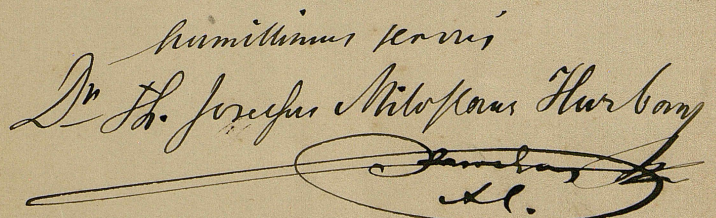 humillimus servus
Dr Th. Josephus Miloslaus Hurban
parochus